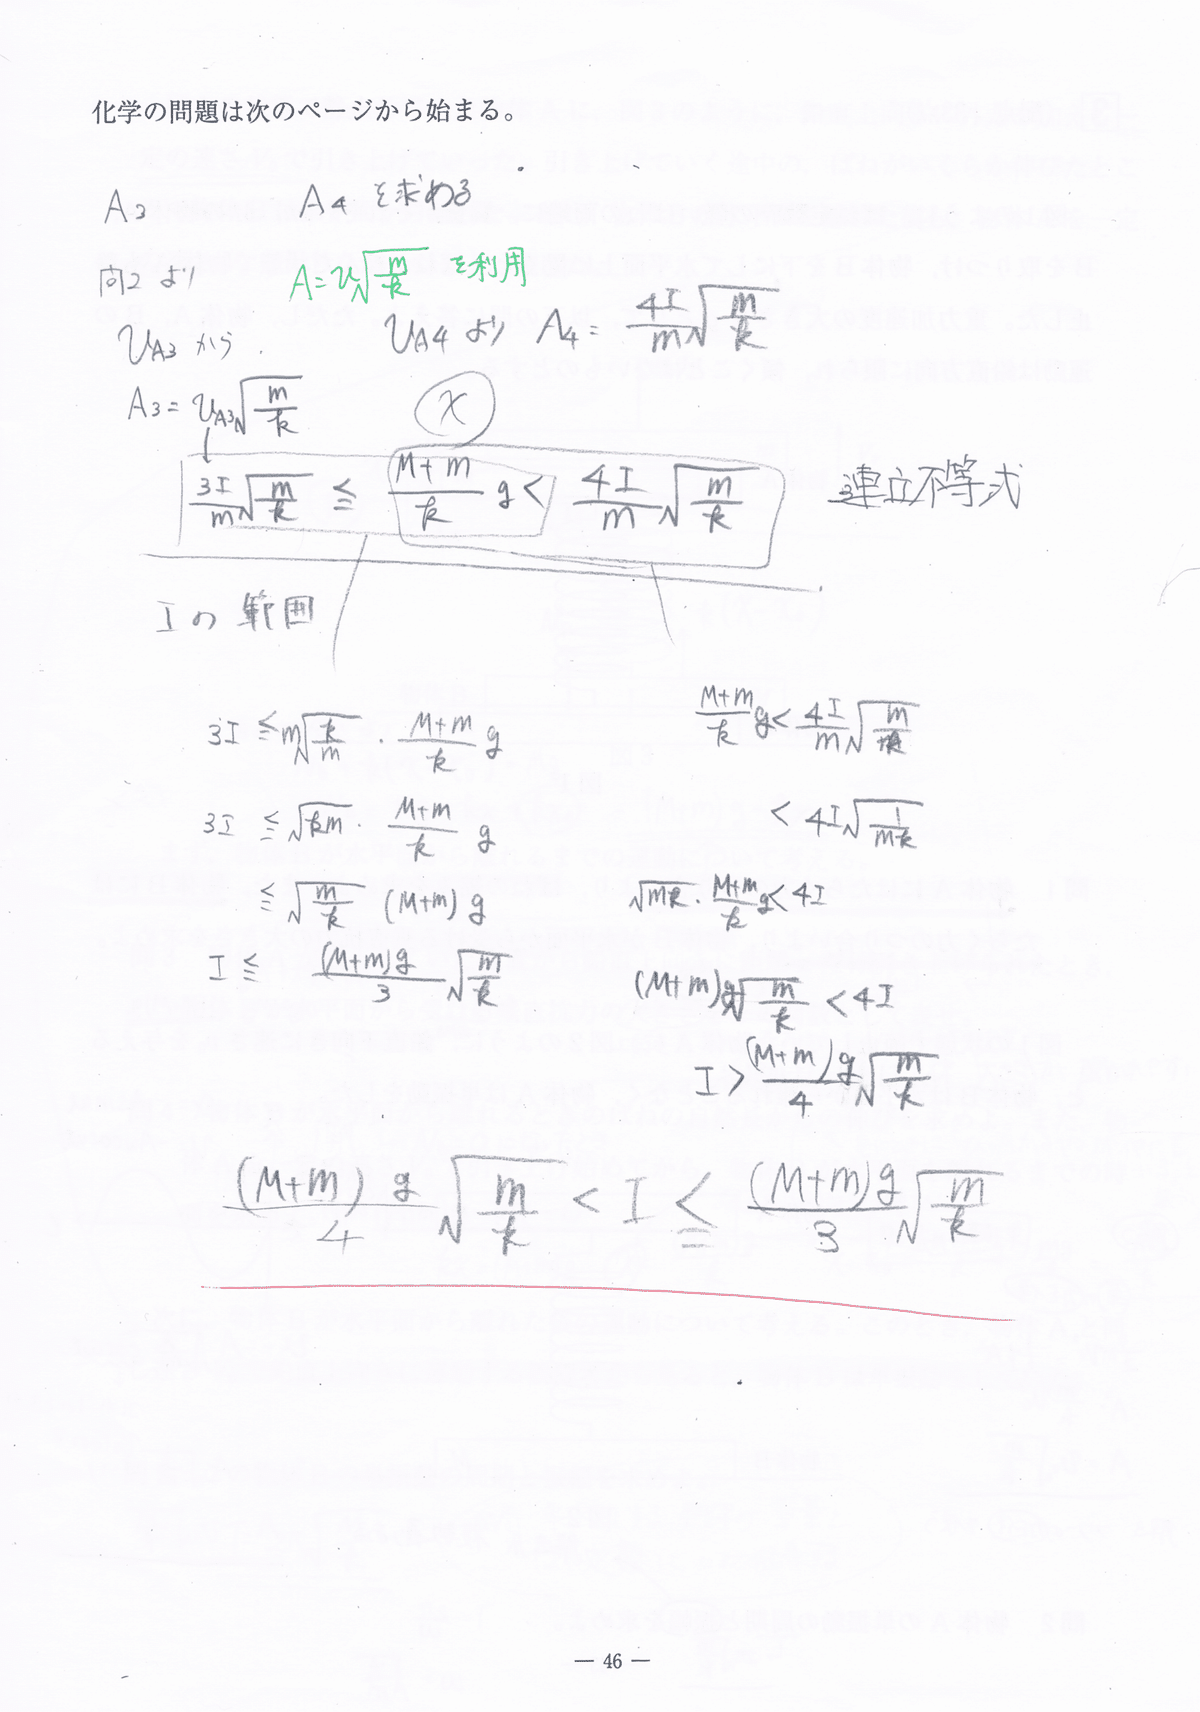 化学の問題は次のページから始まる。
A₃ A4 を求める
問2 より A=v√(m/k) を利用
v_A3 から v_A4 より A₄= 4I/m √(m/k)
A₃= v_A3 √(m/k)
x
3I/m √(m/k) ≦ (M+m)/k g < 4I/m √(m/k) 連立不等式
Iの 範囲
3I ≦ m√(k/m) · (M+m)/k g
(M+m)/k g < 4I/m √(m/k)
3I ≦ √(km) · (M+m)/k g
< 4I√(1/mk)
≦ √(m/k) (M+m) g
√(mk) · (M+m)/k g < 4I
I ≦ (M+m)g/3 √(m/k)
(M+m)g√(m/k) < 4I
I > (M+m)g/4 √(m/k)
(M+m)g/4 √(m/k) < I ≦ (M+m)g/3 √(m/k)
— 46 —